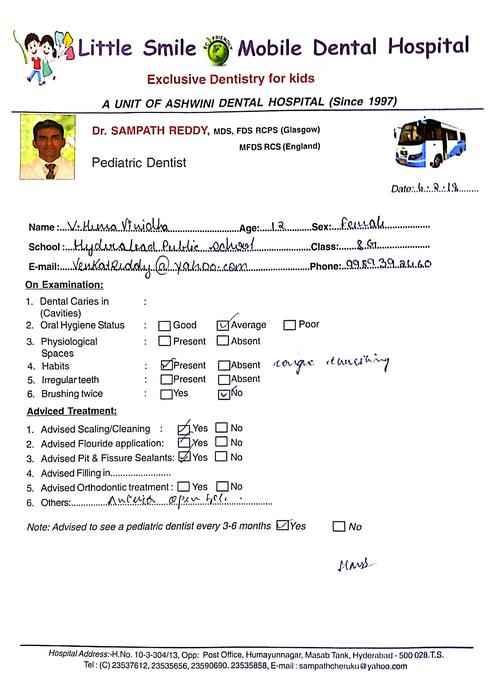 Little Smile Mobile Dental Hospital
ECO FRIENDLY
Exclusive Dentistry for kids
A UNIT OF ASHWINI DENTAL HOSPITAL (Since 1997)
Dr. SAMPATH REDDY, MDS, FDS RCPS (Glasgow)
MFDS RCS (England)
Pediatric Dentist
Date:
Name: V. Hema Age: 12 Sex: Female
School: Hyderabad Public School Class: 8 G
E-mail: VenkatReddy@yahoo.com Phone:
On Examination:
1. Dental Caries in :
(Cavities)
2. Oral Hygiene Status : Good Average Poor
3. Physiological : Present Absent
Spaces
4. Habits : Present Absent tongue thrusting
5. Irregular teeth : Present Absent
6. Brushing twice : Yes No
Adviced Treatment:
1. Advised Scaling/Cleaning : Yes No
2. Advised Flouride application: Yes No
3. Advised Pit & Fissure Sealants: Yes No
4. Advised Filling in
5. Advised Orthodontic treatment : Yes No
6. Others: Anterior open bite.
Note: Advised to see a pediatric dentist every 3-6 months Yes No
Hospital Address:-H.No. 10-3-304/13, Opp: Post Office, Humayunnagar, Masab Tank, Hyderabad - 500 028.T.S.
Tel : (C) 23537612, 23535656, 23590690. 23535858, E-mail : sampathcheruku@yahoo.com